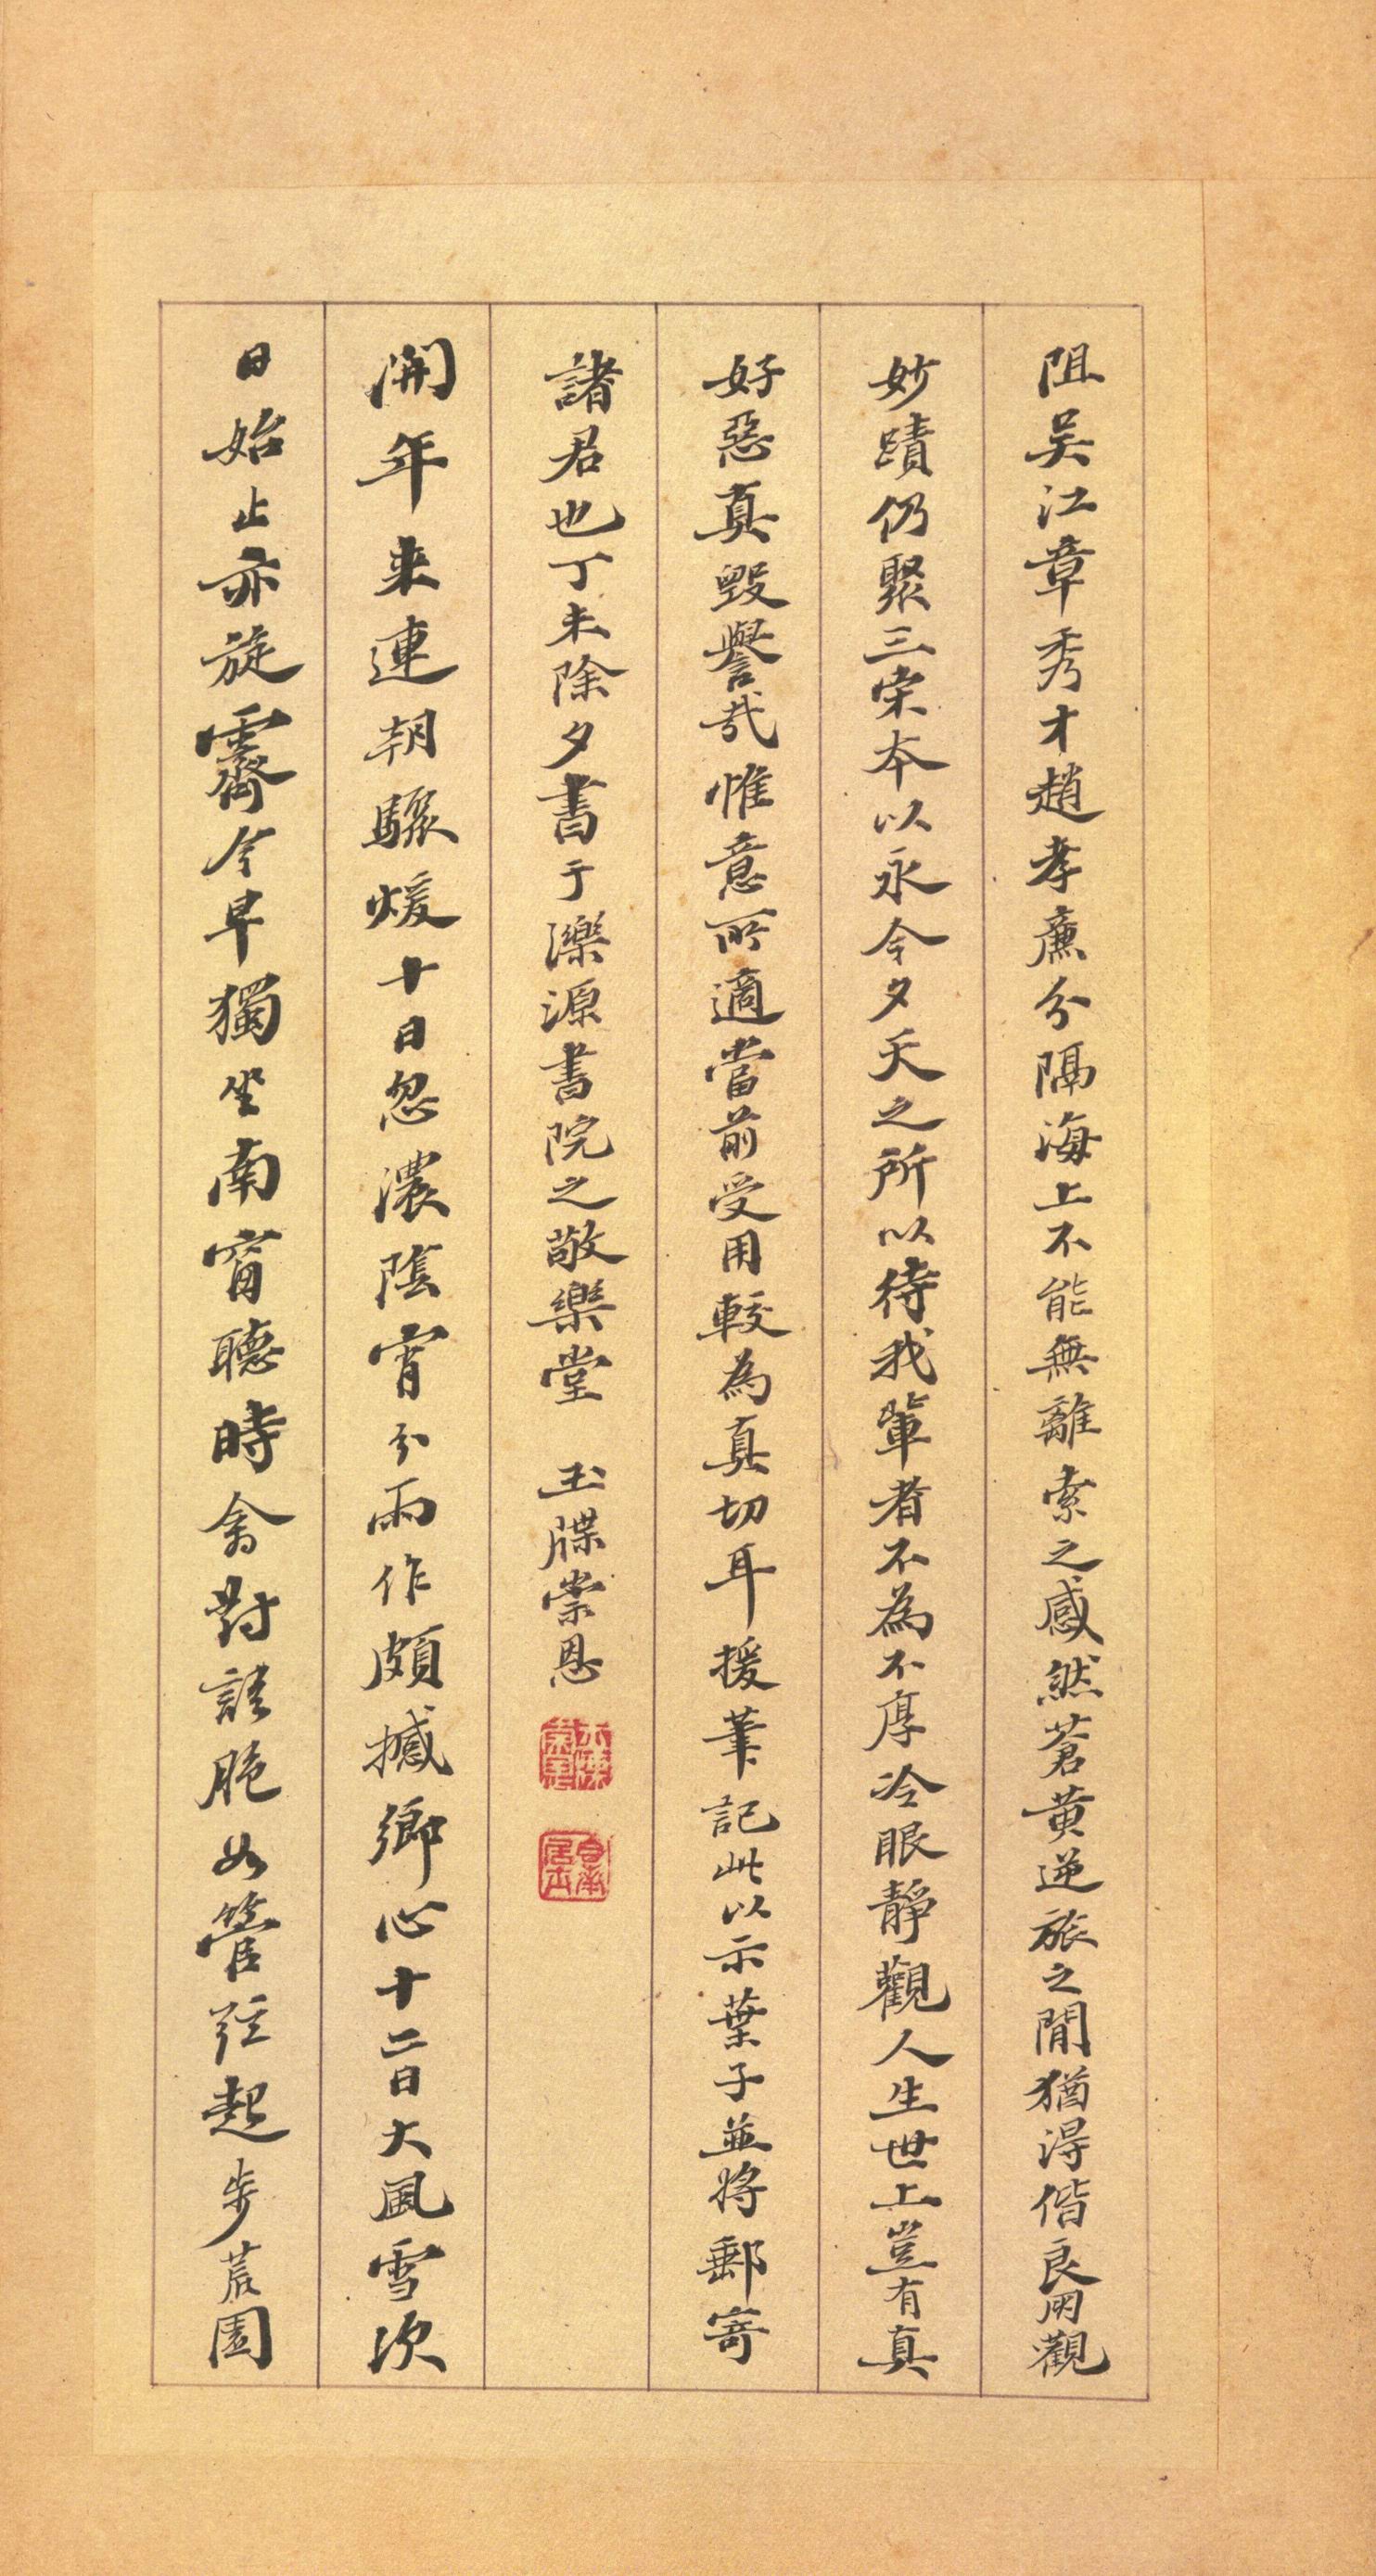 阻吴江章秀才趙孝廉分隔海上不能無離索之感然蒼黄逆旅之間猶得偕良朋觀
妙蹟仍聚三宋本以永今夕天之所以待我輩者不為不厚冷眼靜觀人生世上豈有真
好惡真毀譽哉惟意所適當前受用較為真切耳援筆記此以示葉子並將郵寄
諸君也丁未除夕書于濼源書院之敬樂堂 玉牒崇恩
開年来連朝驟煖十日忽濃陰宵分雨作頗撼鄉心十二日大風雪次
日始止亦旋霽今早獨坐南窗聽時禽對語脆如管弦起步荒園